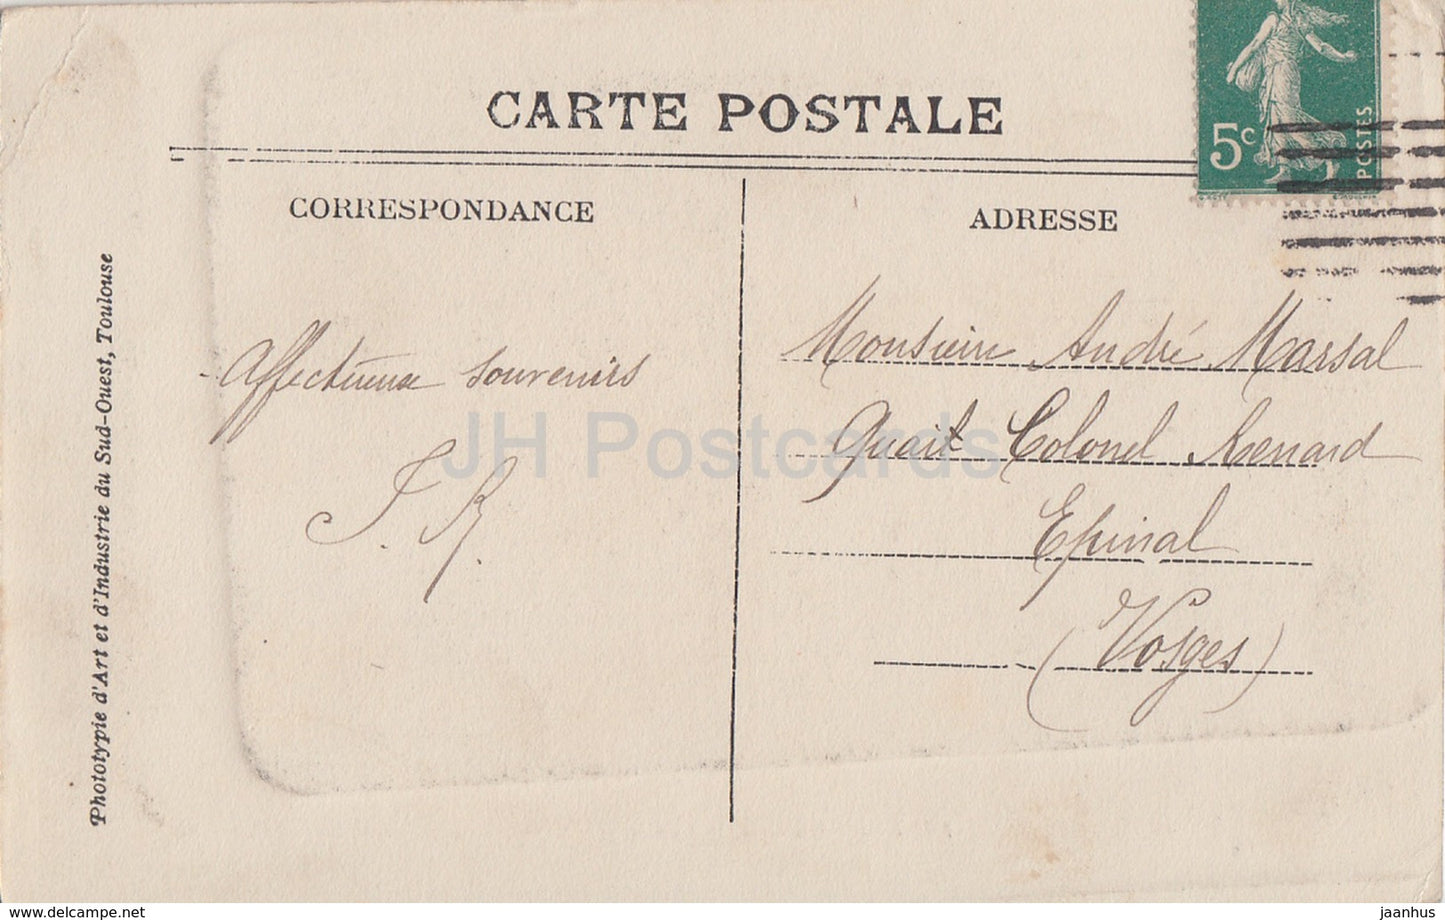 CARTE POSTALE
5c
POSTES
CORRESPONDANCE
ADRESSE
Phototypie d'Art et d'Industrie du Sud-Ouest, Toulouse
Affectueux souvenirs
J. R.
Monsieur André Marsal
Quai Colonel Renard
Epinal
(Vosges)
JH Postcards
www.delcampe.net
jaanhus